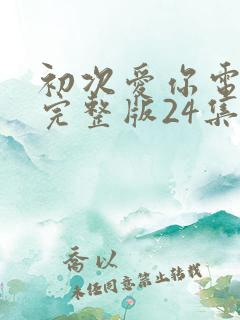 初次爱你电
完整版24集
乔以
未经同意禁止转载